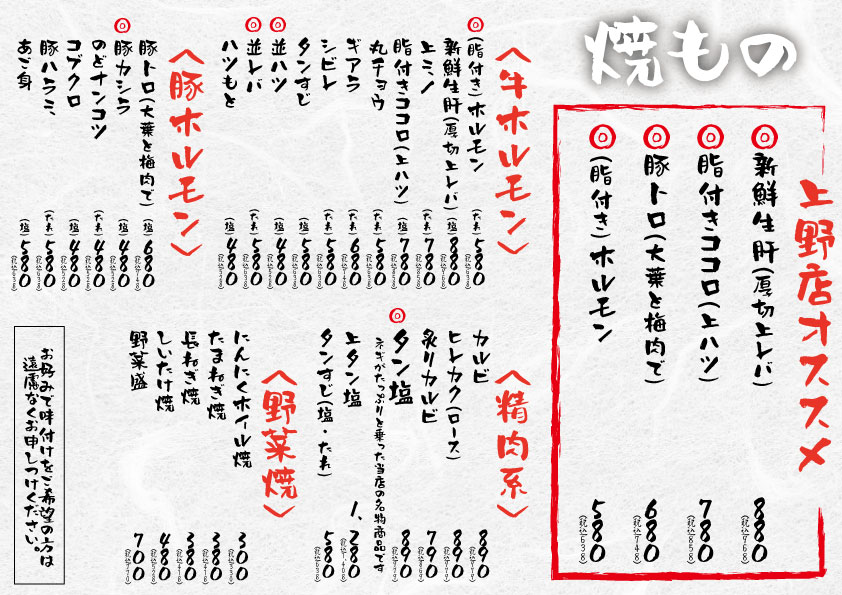 焼もの
上野店オススメ
新鮮生肝(厚切上レバ) 880 (税込968)
脂付きココロ(上ハツ) 780 (税込858)
豚トロ(大葉と梅肉で) 680 (税込748)
(脂付き)ホルモン 580 (税込638)
〈牛ホルモン〉
(脂付き)ホルモン (たれ) 580 (税込638)
新鮮生肝(厚切上レバ) (塩) 880 (税込968)
上ミノ (たれ) 780 (税込858)
脂付きココロ(上ハツ) (塩) 780 (税込858)
丸チョウ (たれ) 580 (税込638)
ギアラ (たれ) 680 (税込748)
シビレ (塩) 580 (税込638)
タンすじ (塩) 580 (税込638)
並ハツ (塩) 480 (税込528)
並レバ (たれ) 580 (税込638)
ハツもと (塩) 480 (税込528)
〈豚ホルモン〉
豚トロ(大葉と梅肉で) (塩) 680 (税込748)
豚カシラ (塩) 480 (税込528)
のどナンコツ (たれ) 480 (税込528)
コブクロ (塩) 480 (税込528)
豚ハラミ (たれ) 580 (税込638)
あご身 (塩) 580 (税込638)
〈精肉系〉
カルビ 890 (税込979)
ヒレカク(ロース) 890 (税込979)
炙りカルビ 790 (税込869)
タン塩 890 (税込979)
ネギがたっぷりと乗った当店の名物商品です
上タン塩 1,280 (税込1,408)
タンすじ(塩・たれ) 580 (税込638)
〈野菜焼〉
にんにくホイル焼 300 (税込330)
たまねぎ焼 380 (税込418)
長ねぎ焼 380 (税込418)
しいたけ焼 480 (税込528)
野菜盛 700 (税込770)
お好みで味付けをご希望の方は
遠慮なくお申しつけください。